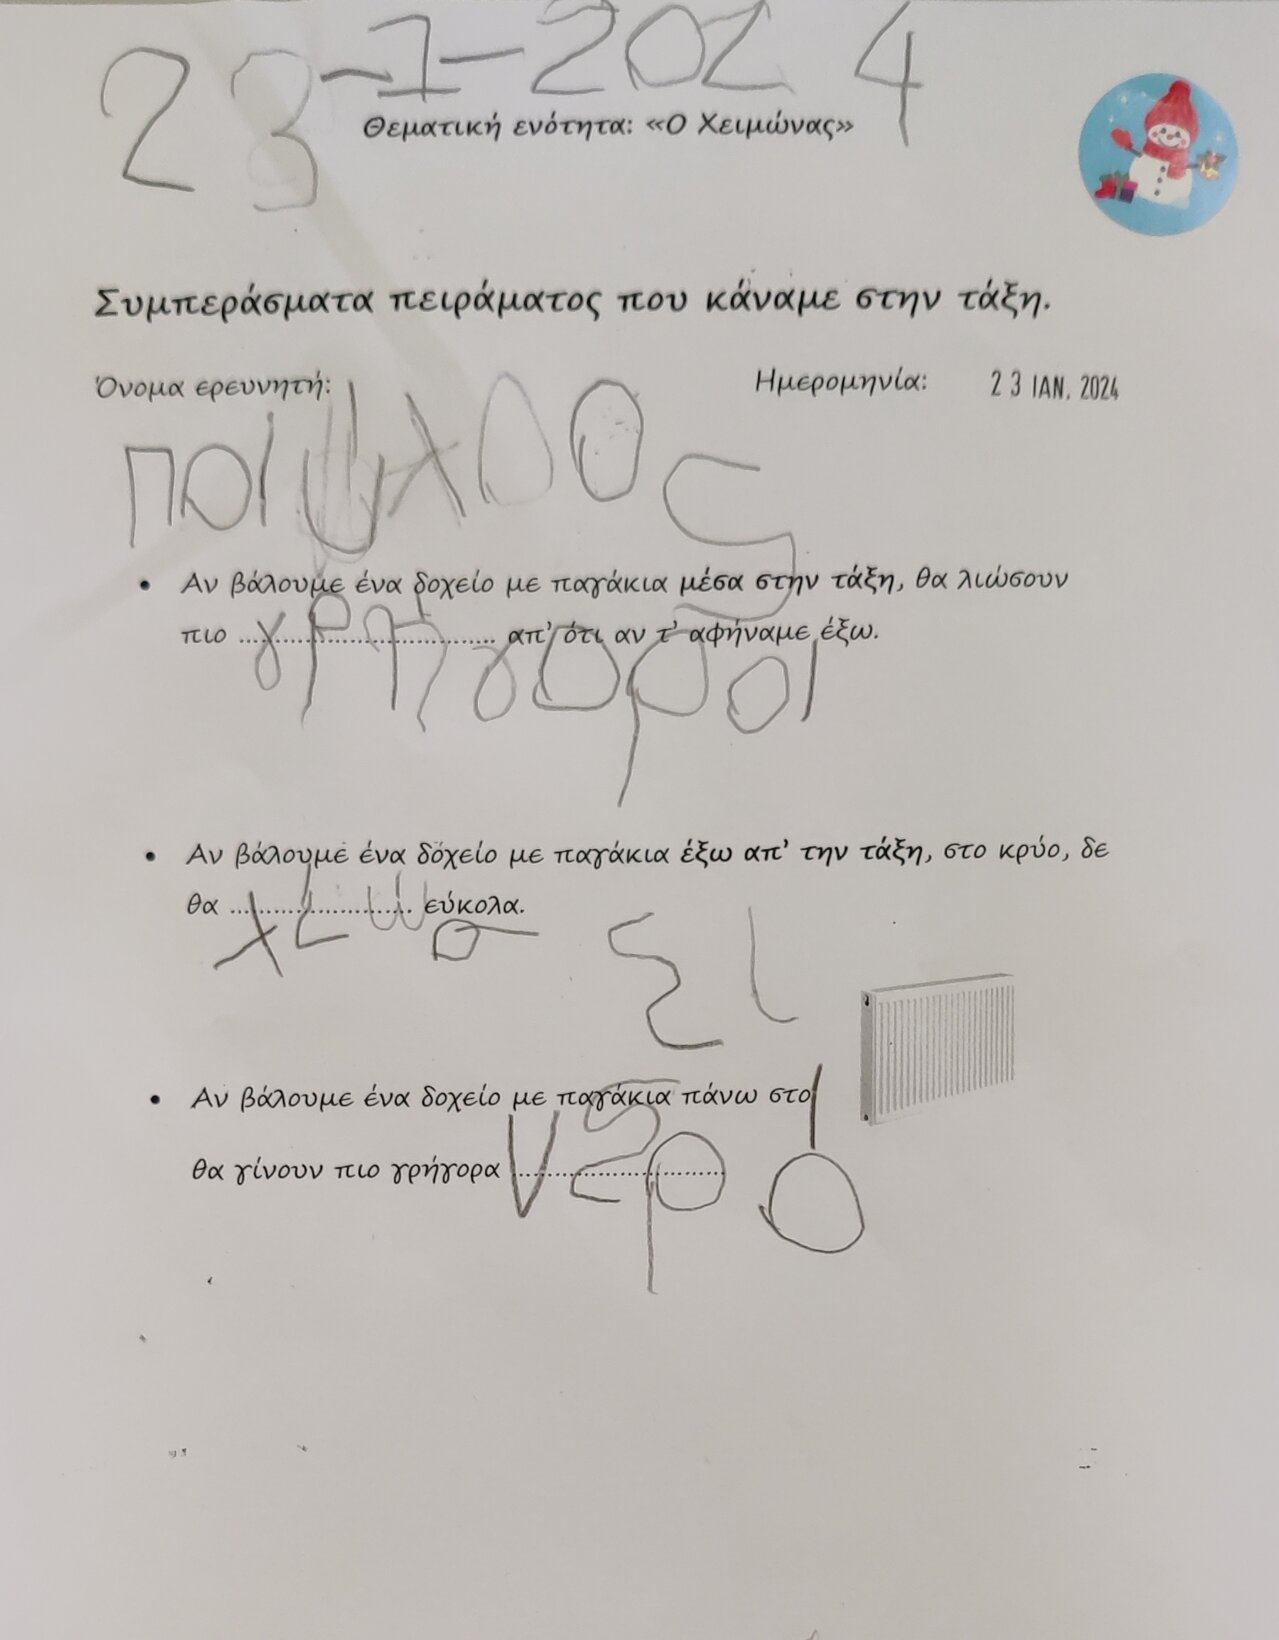 23-1-2024
Θεματική ενότητα: «Ο Χειμώνας»
Συμπεράσματα πειράματος που κάναμε στην τάξη.
Όνομα ερευνητή: Ημερομηνία: 23 ΙΑΝ. 2024
• Αν βάλουμε ένα δοχείο με παγάκια μέσα στην τάξη, θα λιώσουν
πιο .................................. απ' ότι αν τ' αφήναμε έξω.
γρηγοροι
• Αν βάλουμε ένα δοχείο με παγάκια έξω απ' την τάξη, στο κρύο, δε
θα ........................ εύκολα.
• Αν βάλουμε ένα δοχείο με παγάκια πάνω στο
θα γίνουν πιο γρήγορα νερό